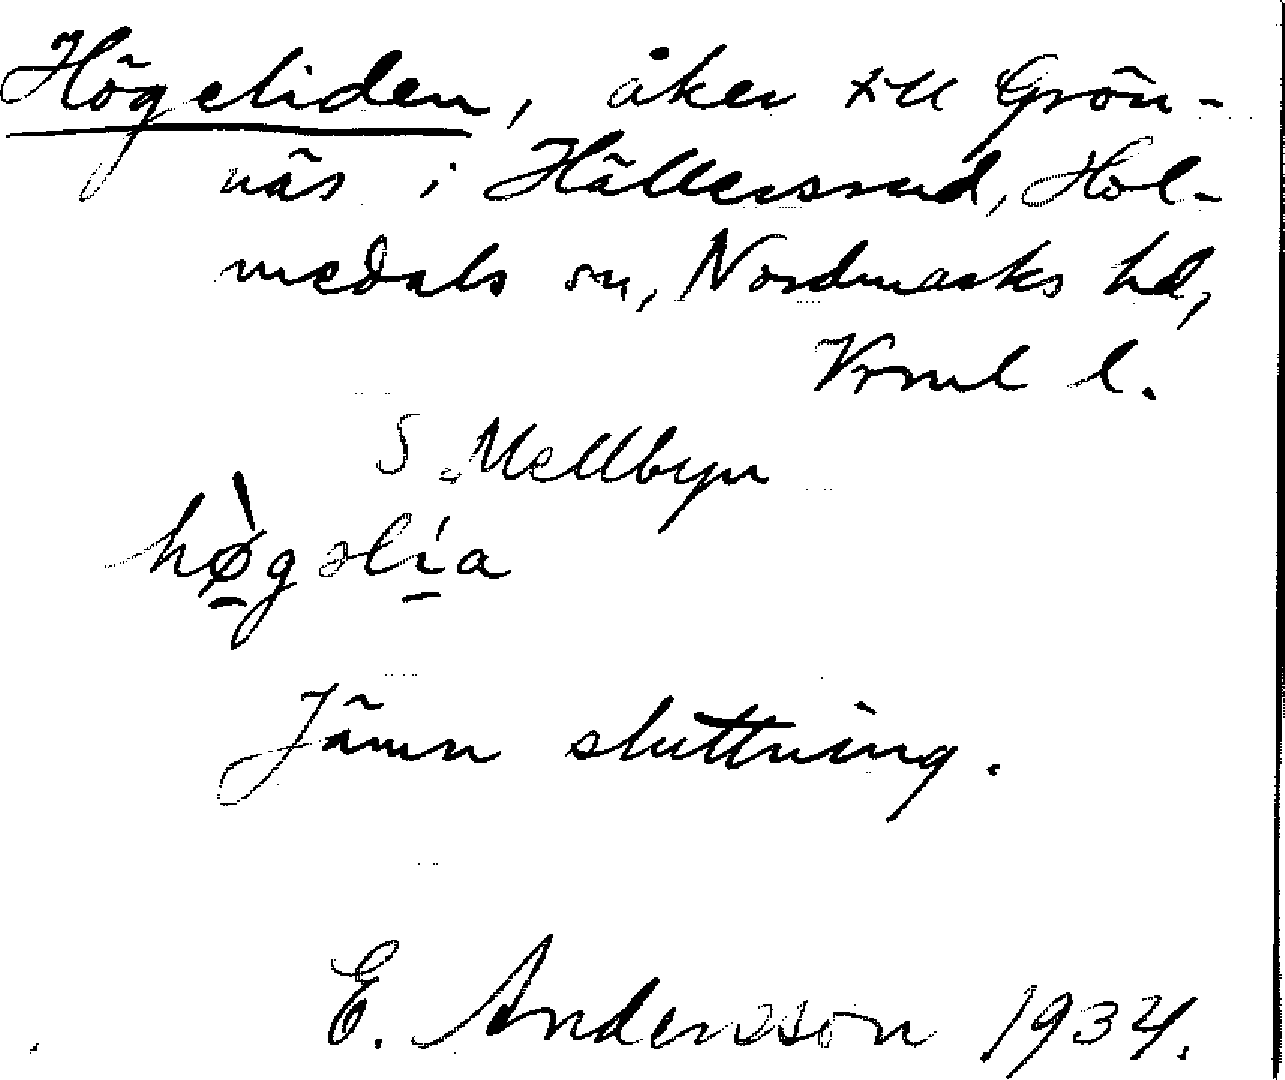 Högeliden, åker till Grön-
näs i Hällersrud, Hol-
medals sn, Nordmarks hd,
Vrml l.
S. Mellbyn
hø̀gəlía
Jämn sluttning.
E. Andersson 1934.